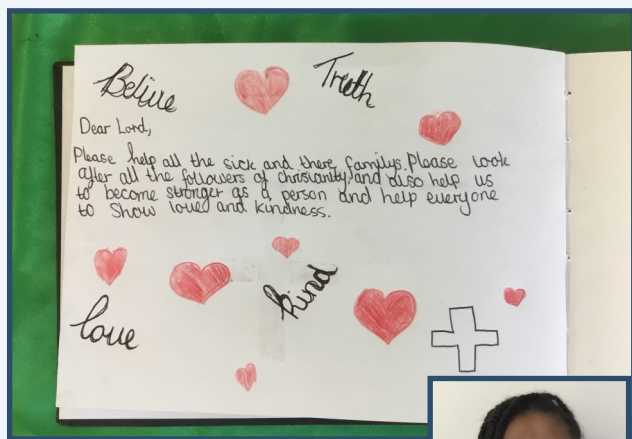 Belive
Truth
Dear Lord,
Please help all the sick and there familys. Please look
after all the followers of christianity and also help us
to become stronger as a person and help everyone
to show love and kindness.
kind
love